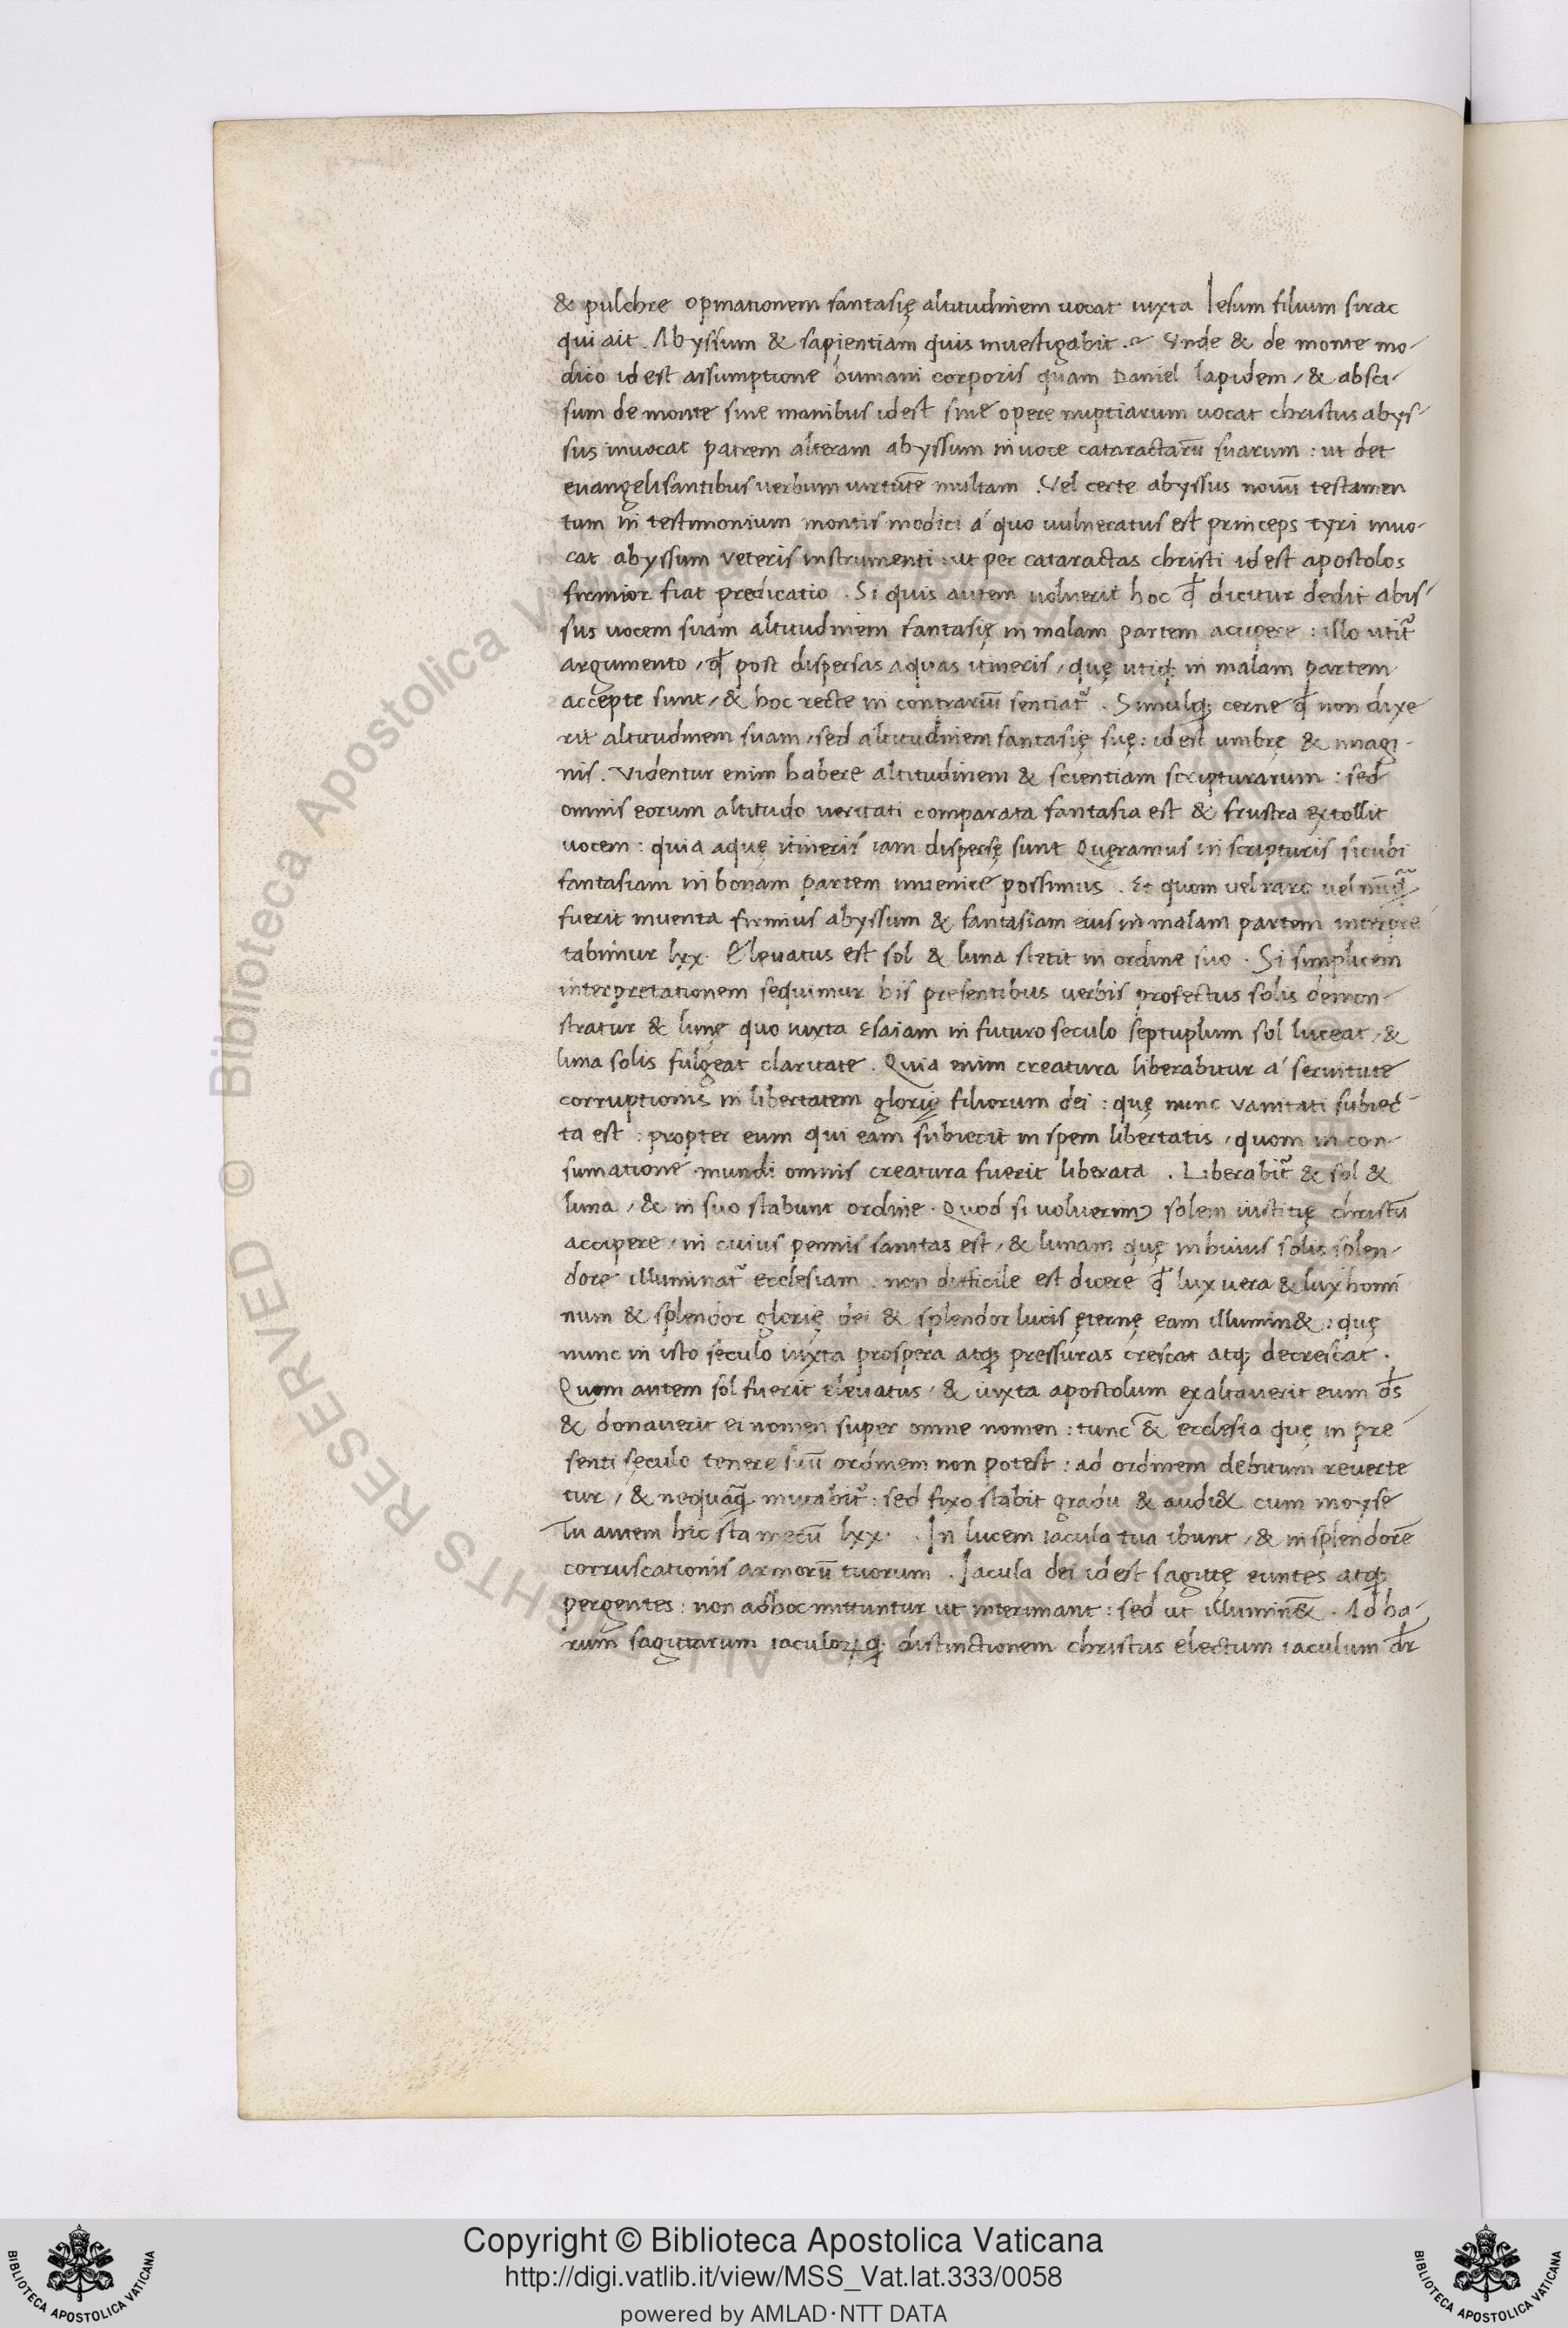 & pulchre opinationem fantasię altitudinem uocat iuxta Iesum filium sirac
qui ait. Abyssum & sapientiam quis inuestigabit. Unde & de monte mo-
dico idest assumptione humani corporis quam Daniel lapidem, & absci-
sum de monte sine manibus idest sine opere nuptiarum uocat christus abys-
sus inuocat patrem alteram abyssum in uoce cataractarū suarum: ut det
euangelisantibus uerbum uirtutē multam. Vel certe abyssus nouū testamen
tum in testimonium montis modici á quo uulneratus est princeps tyri inuo-
cat abyssum veteris instrumenti: ut per cataractas christi idest apostolos
firmior fiat predicatio. Si quis autem uoluerit hoc qđ dicitur dedit abis-
sus uocem suam altitudinem fantasię in malam partem accipere: illo utit᷑
argumento, qđ post dispersas aquas itineris, quę utiq; in malam partem
accepte sunt, & hoc recte in contrariū sentiat᷑. Simulq; cerne qđ non dixe
rit altitudinem suam, sed altitudinem fantasię suę: idest umbrę & imagi-
nis. Videntur enim habere altitudinem & scientiam scripturarum: sed
omnis eorum altitudo ueritati comparata fantasia est & frustra extollit
uocem: quia aquę itineris iam dispersę sunt Quęramus in scripturis sicubi
fantasiam in bonam partem inuenire possimus. Et quom uel raro uel nūq̄
fuerit inuenta firmius abyssum & fantasiam eius in malam partem interpre
tabimur lxx. Eleuatus est sol & luna stetit in ordine suo. Si simplicem
interpretationem sequimur his presentibus uerbis profectus solis demon-
stratur & lunę quo iuxta Esaiam in futuro seculo septuplum sol luceat, &
luna solis fulgeat claritate. Quia enim creatura liberabitur á seruitute
corruptionis in libertatem glorię filiorum dei: quę nunc vanitati subiec-
ta est: propter eum qui eam subiecit in spem libertatis, quom in con-
sumatione mundi omnis creatura fuerit liberata. Liberabit᷑ & sol &
luna, & in suo stabunt ordine. Quod si uoluerimꝰ solem iustitię christū
accipere, in cuius pennis sanitas est, & lunam quę in huius solis splen-
dore illuminat᷑ ecclesiam. non difficile est dicere qđ lux uera & lux homi
num & splendor glorię dei & splendor lucis ęternę eam illumin&: quę
nunc in isto seculo iuxta prospera atq; pressuras crescat atq; decrescat.
Quom autem sol fuerit eleuatus, & iuxta apostolum exaltauerit eum ds̄
& donauerit ei nomen super omne nomen: tunc & ecclesia quę in pre
senti seculo tenere suū ordinem non potest: ad ordinem debitum reuerte
tur, & nequāq̄ mutabit᷑: sed fixo stabit gradu & audi& cum moyse
Tu autem hic sta mecū lxx. In lucem iacula tua ibunt, & in splendorē
corruscationis armorū tuorum. Iacula dei idest sagitę euntes atq;
pergentes: non adhoc mittuntur ut interimant: sed ut illumin&. Ad ha-
rum sagittarum iaculoꝝq; distinctionem christus electum iaculum dr̄